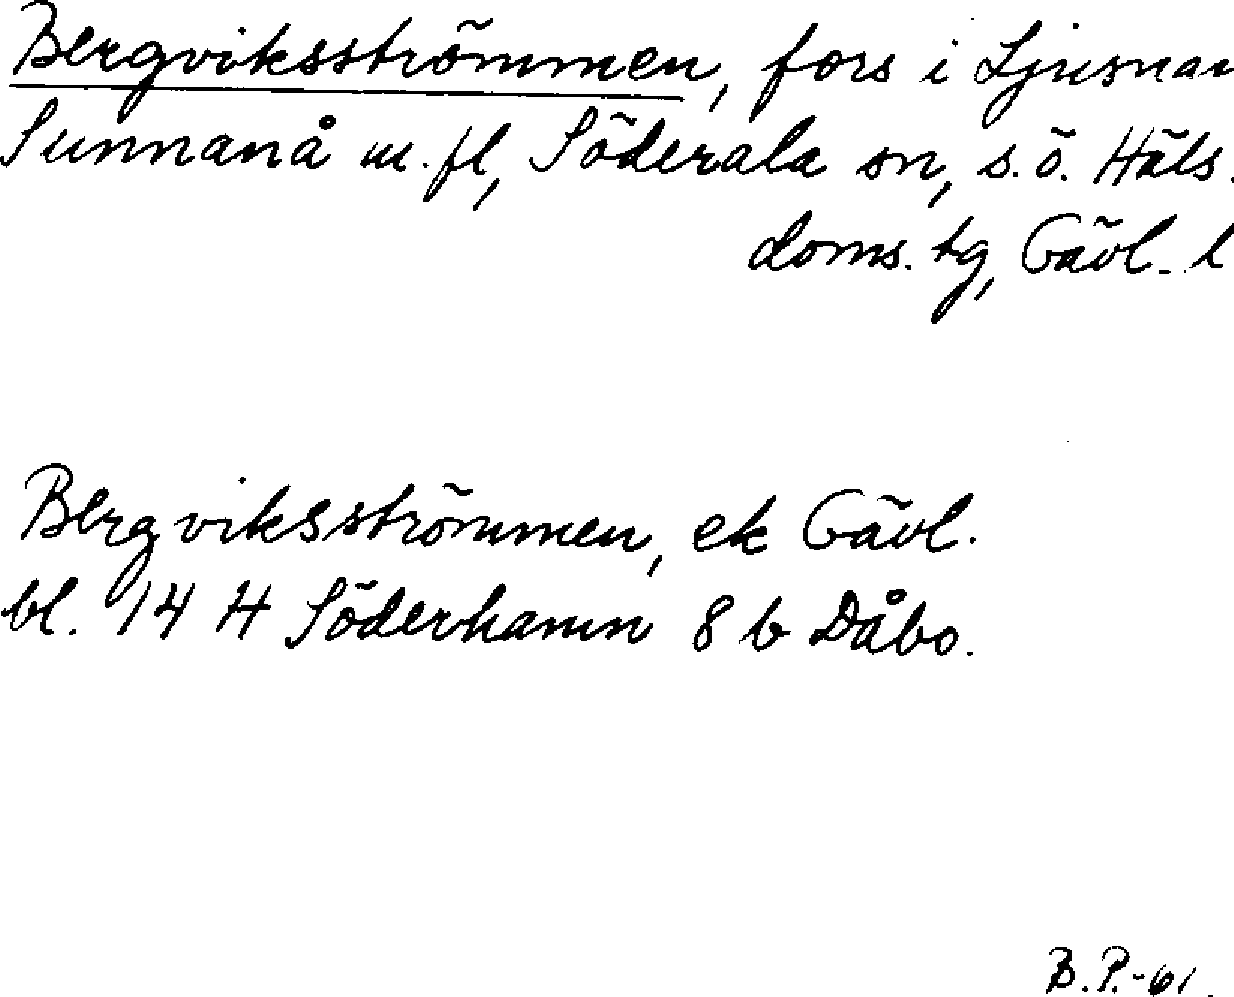 Bergviksströmmen, fors i Ljusnan
Sunnanå m.fl, Söderala sn, s.ö. Häls.
doms. tg, Gävl. l
Bergviksströmmen, ek Gävl.
bl. 14 H Söderhamn 8 b Dåbo.
B.P.-61.